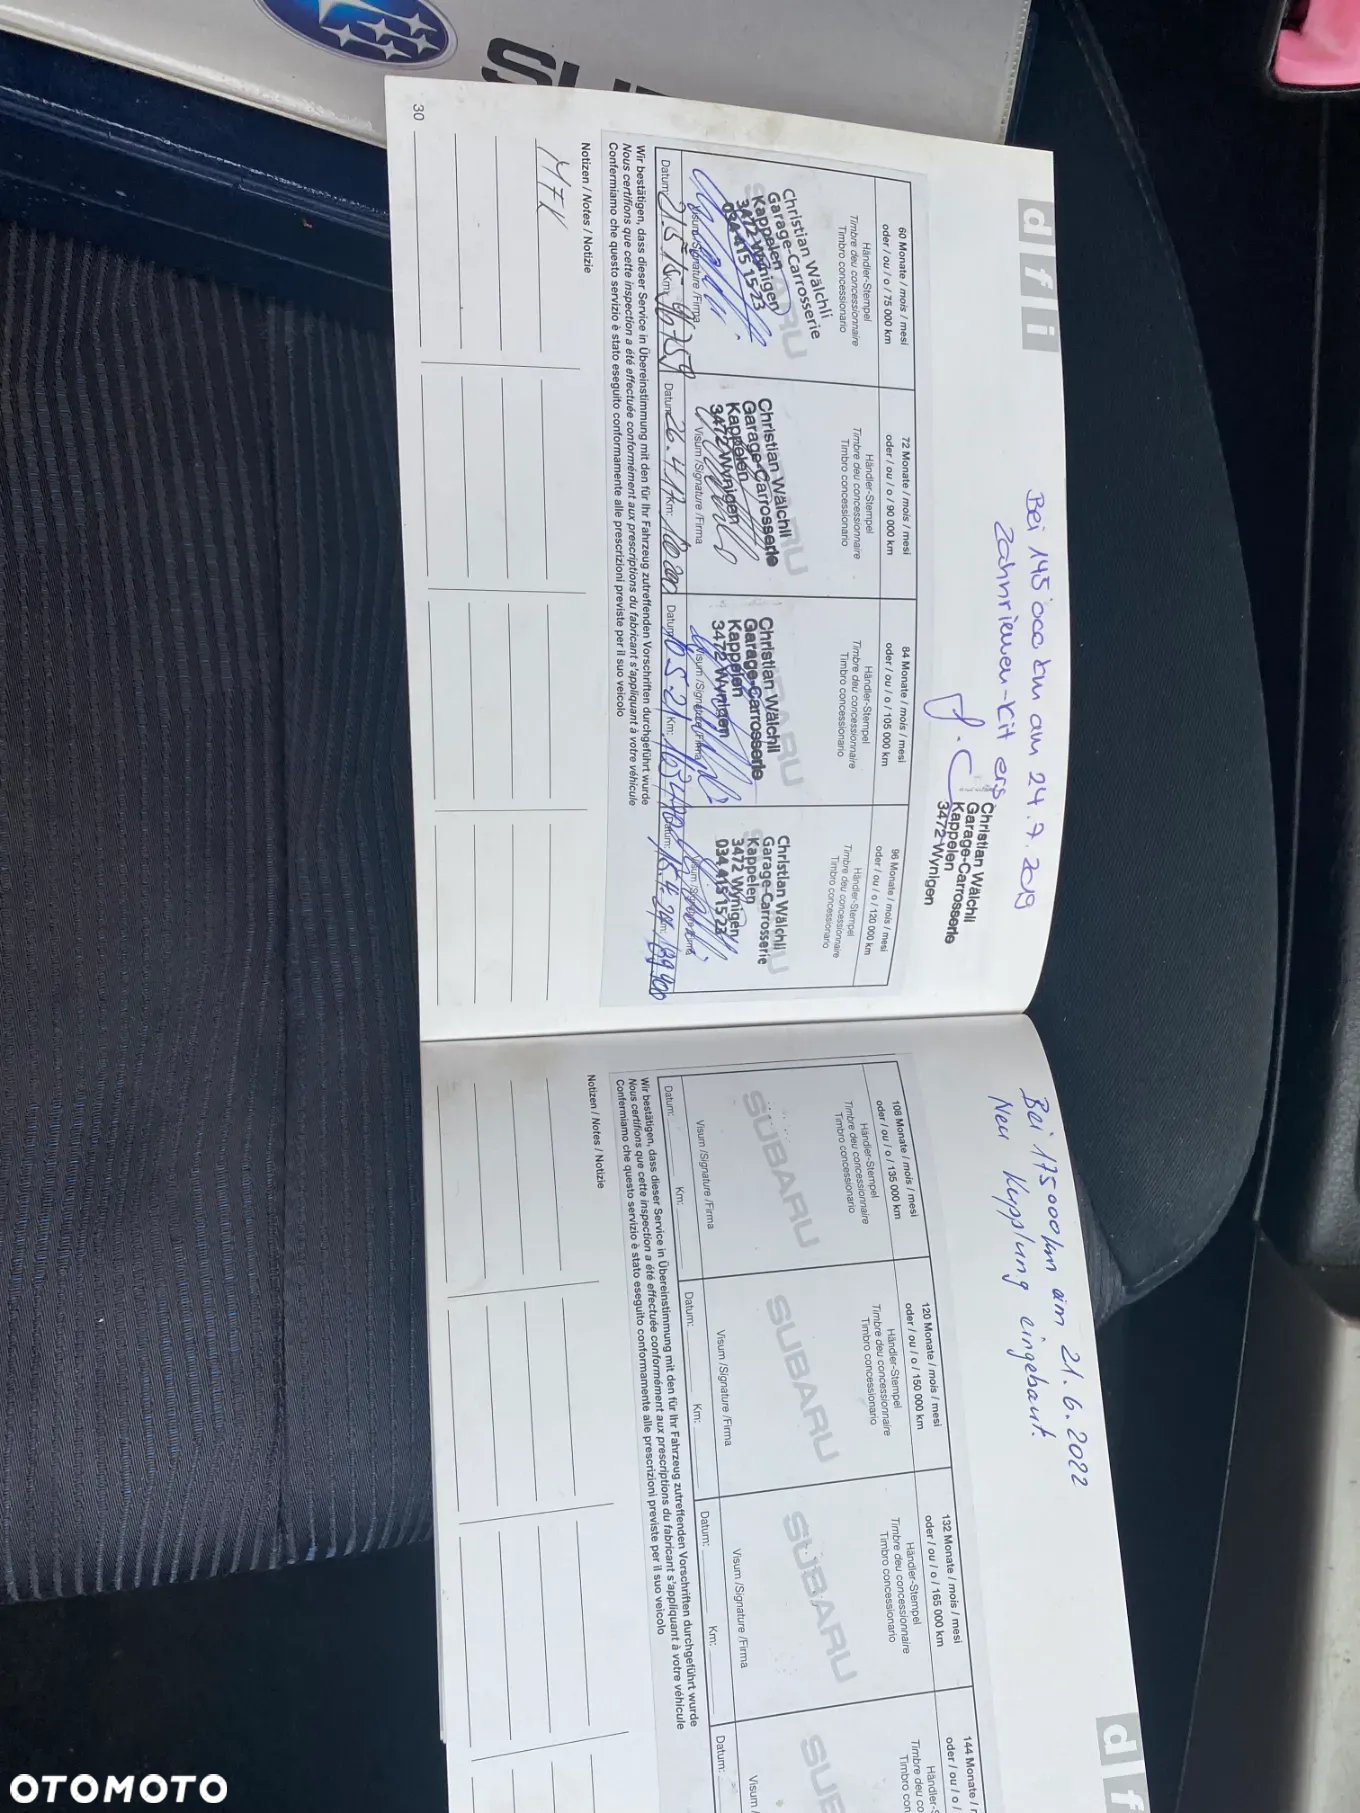 SU
d f i
Bei 145'000 km am 24.7.2019
Zahnriemen-Kit ers.
Christian Wälchli
Garage-Carrosserie
Kappelen
3472 Wynigen
60 Monate / mois / mesi
oder / ou / o / 75 000 km
Händler-Stempel
Timbre deu concessionnaire
Timbro concessionario
Christian Wälchli
Garage-Carrosserie
Kappelen
3472 Wynigen
034 415 15 23
Visum /Signature /Firma
Datum: Km:
72 Monate / mois / mesi
oder / ou / o / 90 000 km
Händler-Stempel
Timbre deu concessionnaire
Timbro concessionario
Christian Wälchli
Garage-Carrosserie
Kappelen
3472 Wynigen
Visum /Signature /Firma
Datum: 26.4.17 Km:
84 Monate / mois / mesi
oder / ou / o / 105 000 km
Händler-Stempel
Timbre deu concessionnaire
Timbro concessionario
Christian Wälchli
Garage-Carrosserie
Kappelen
3472 Wynigen
Visum /Signature /Firma
Datum: Km:
96 Monate / mois / mesi
oder / ou / o / 120 000 km
Händler-Stempel
Timbre deu concessionnaire
Timbro concessionario
Christian Wälchli
Garage-Carrosserie
Kappelen
3472 Wynigen
034 415 15 23
Datum: Km:
Wir bestätigen, dass dieser Service in Übereinstimmung mit den für Ihr Fahrzeug zutreffenden Vorschriften durchgeführt wurde
Nous certifions que cette inspection a été effectuée conformément aux prescriptions du fabricant s'appliquant à votre véhicule
Confermiamo che questo servizio è stato eseguito conformamente alle prescrizioni previste per il suo veicolo
Notizen / Notes / Notizie
30
d f
Bei 175000km am 21.6.2022
Neu Kupplung eingebaut.
108 Monate / mois / mesi
oder / ou / o / 135 000 km
Händler-Stempel
Timbre deu concessionnaire
Timbro concessionario
SUBARU
Visum /Signature /Firma
Datum: Km:
120 Monate / mois / mesi
oder / ou / o / 150 000 km
Händler-Stempel
Timbre deu concessionnaire
Timbro concessionario
SUBARU
Visum /Signature /Firma
Datum: Km:
132 Monate / mois / mesi
oder / ou / o / 165 000 km
Händler-Stempel
Timbre deu concessionnaire
Timbro concessionario
SUBARU
Visum /Signature /Firma
Datum: Km:
144 Monate /
oder / ou / o /
Händler-S
Timbre deu co
Timbro con
SUB
Visum /
Datum:
Wir bestätigen, dass dieser Service in Übereinstimmung mit den für Ihr Fahrzeug zutreffenden Vorschriften durchgeführt wurde
Nous certifions que cette inspection a été effectuée conformément aux prescriptions du fabricant s'appliquant à votre véhicule
Confermiamo che questo servizio è stato eseguito conformamente alle prescrizioni previste per il suo veicolo
Notizen / Notes / Notizie
OTOMOTO